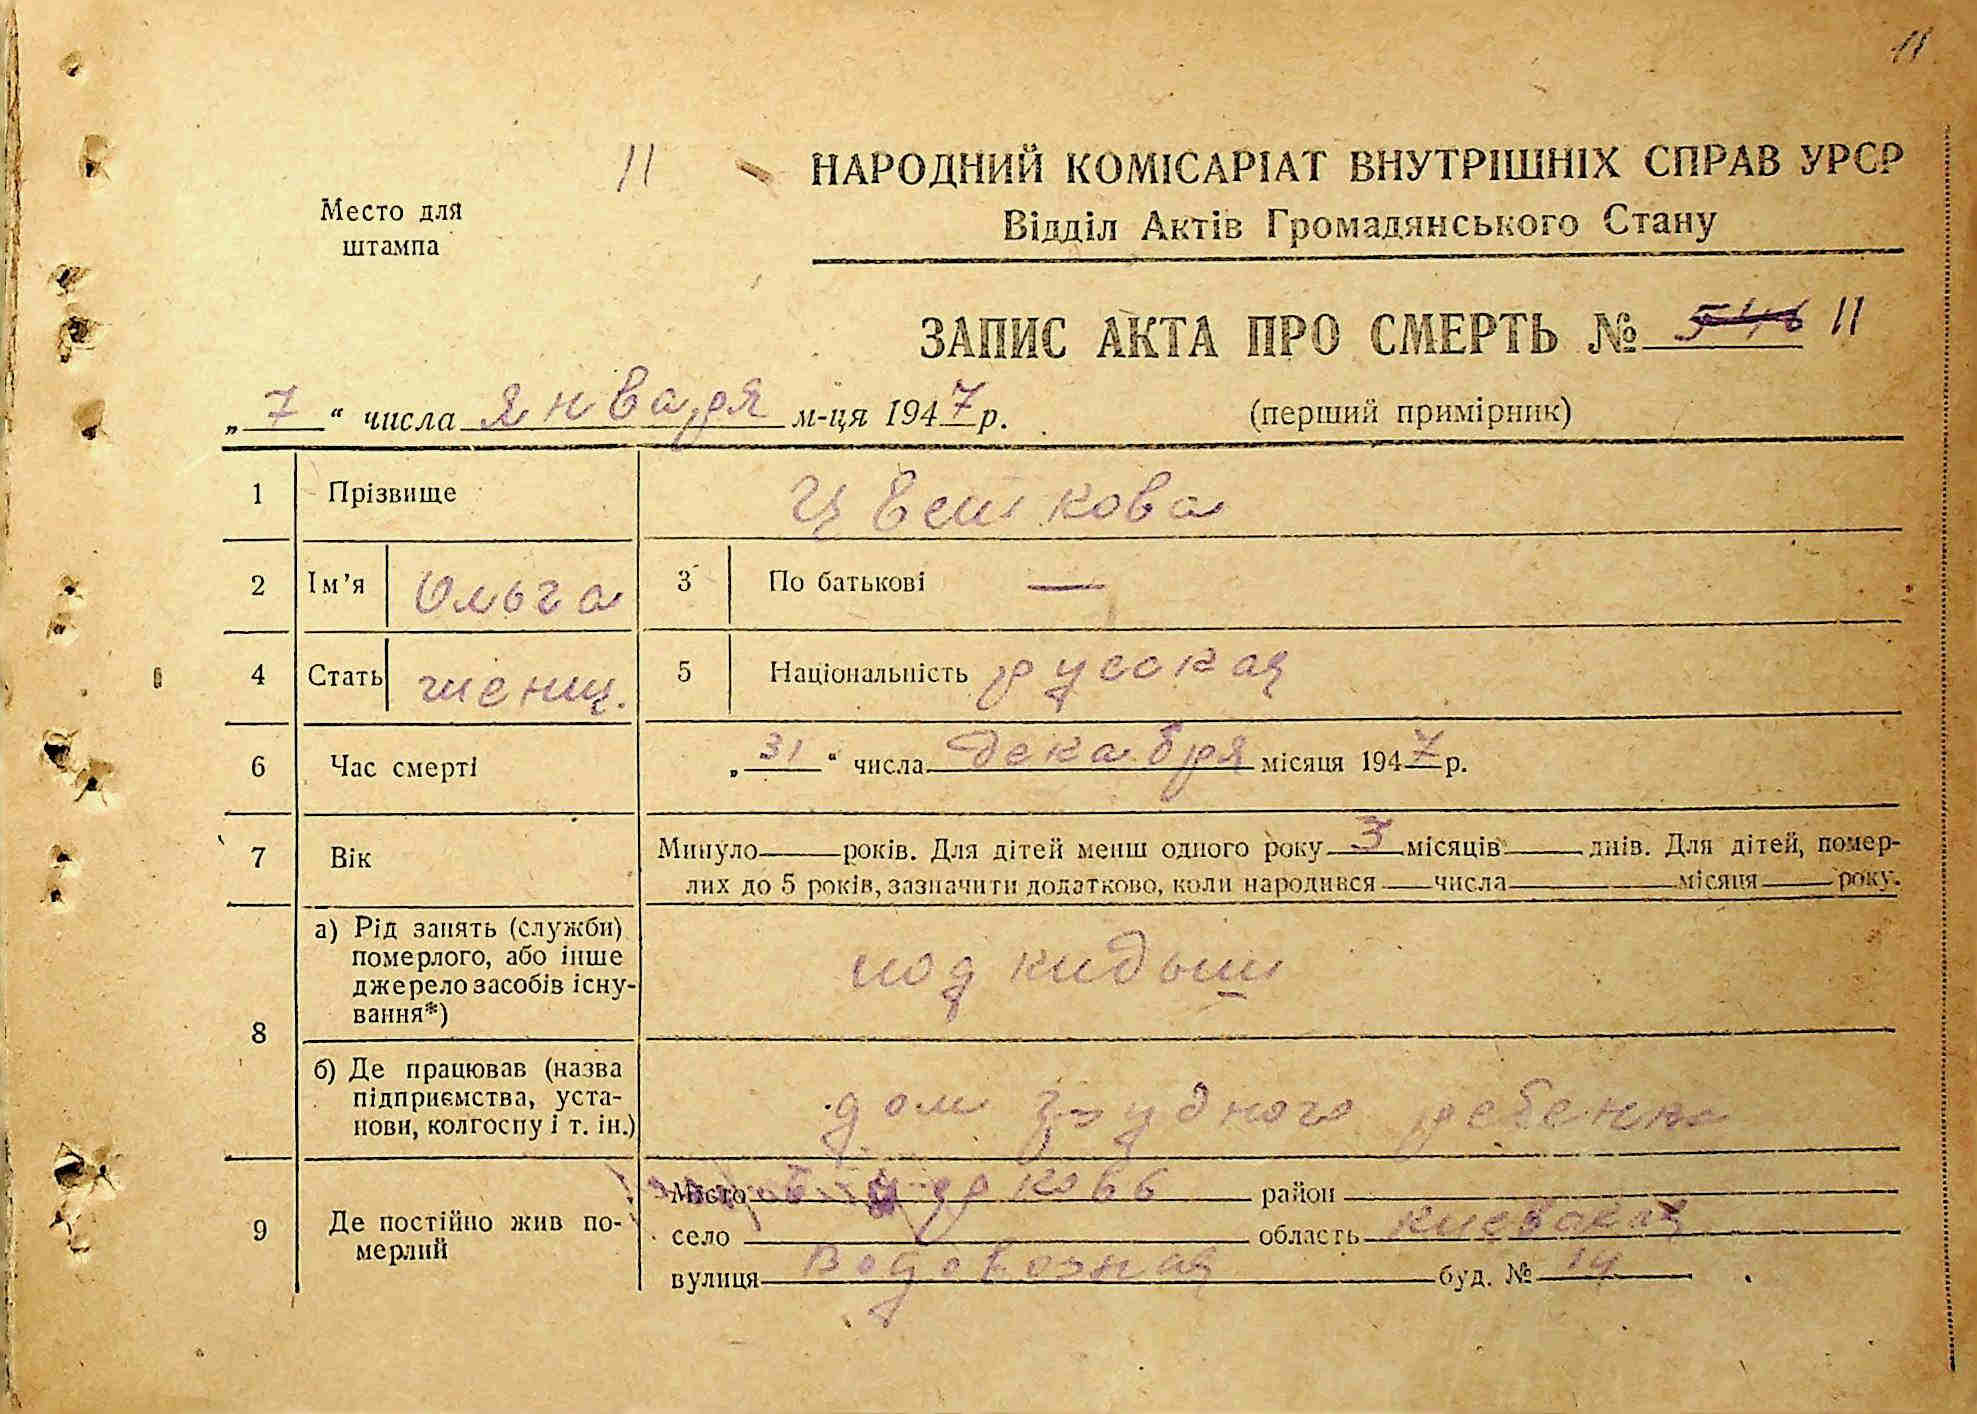 11
11
Место для
штампа
НАРОДНИЙ КОМІСАРІАТ ВНУТРІШНІХ СПРАВ УРСР
Відділ Актів Громадянського Стану
ЗАПИС АКТА ПРО СМЕРТЬ № 546 11
„ 7 “ числа января м-ця 1947 р.
(перший примірник)
1 Прізвище Цветкова
2 Ім’я Ольга 3 По батькові —
4 Стать женщ. 5 Національність русская
6 Час смерті „ 31 “ числа декабря місяця 1947 р.
7 Вік Минуло ___ років. Для дітей менш одного року 3 місяців ___ днів. Для дітей, помер-
лих до 5 років, зазначити додатково, коли народився ___ числа ___ місяця ___ року.
8 а) Рід занять (служби)
померлого, або інше
джерело засобів існу-
вання*)
подкидыш
б) Де працював (назва
підприємства, уста-
нови, колгоспу і т. ін.)
дом грудного ребенка
9 Де постійно жив по-
мерлий
Місто б церковь район
село область киевская
вулиця Водовозная буд. № 14